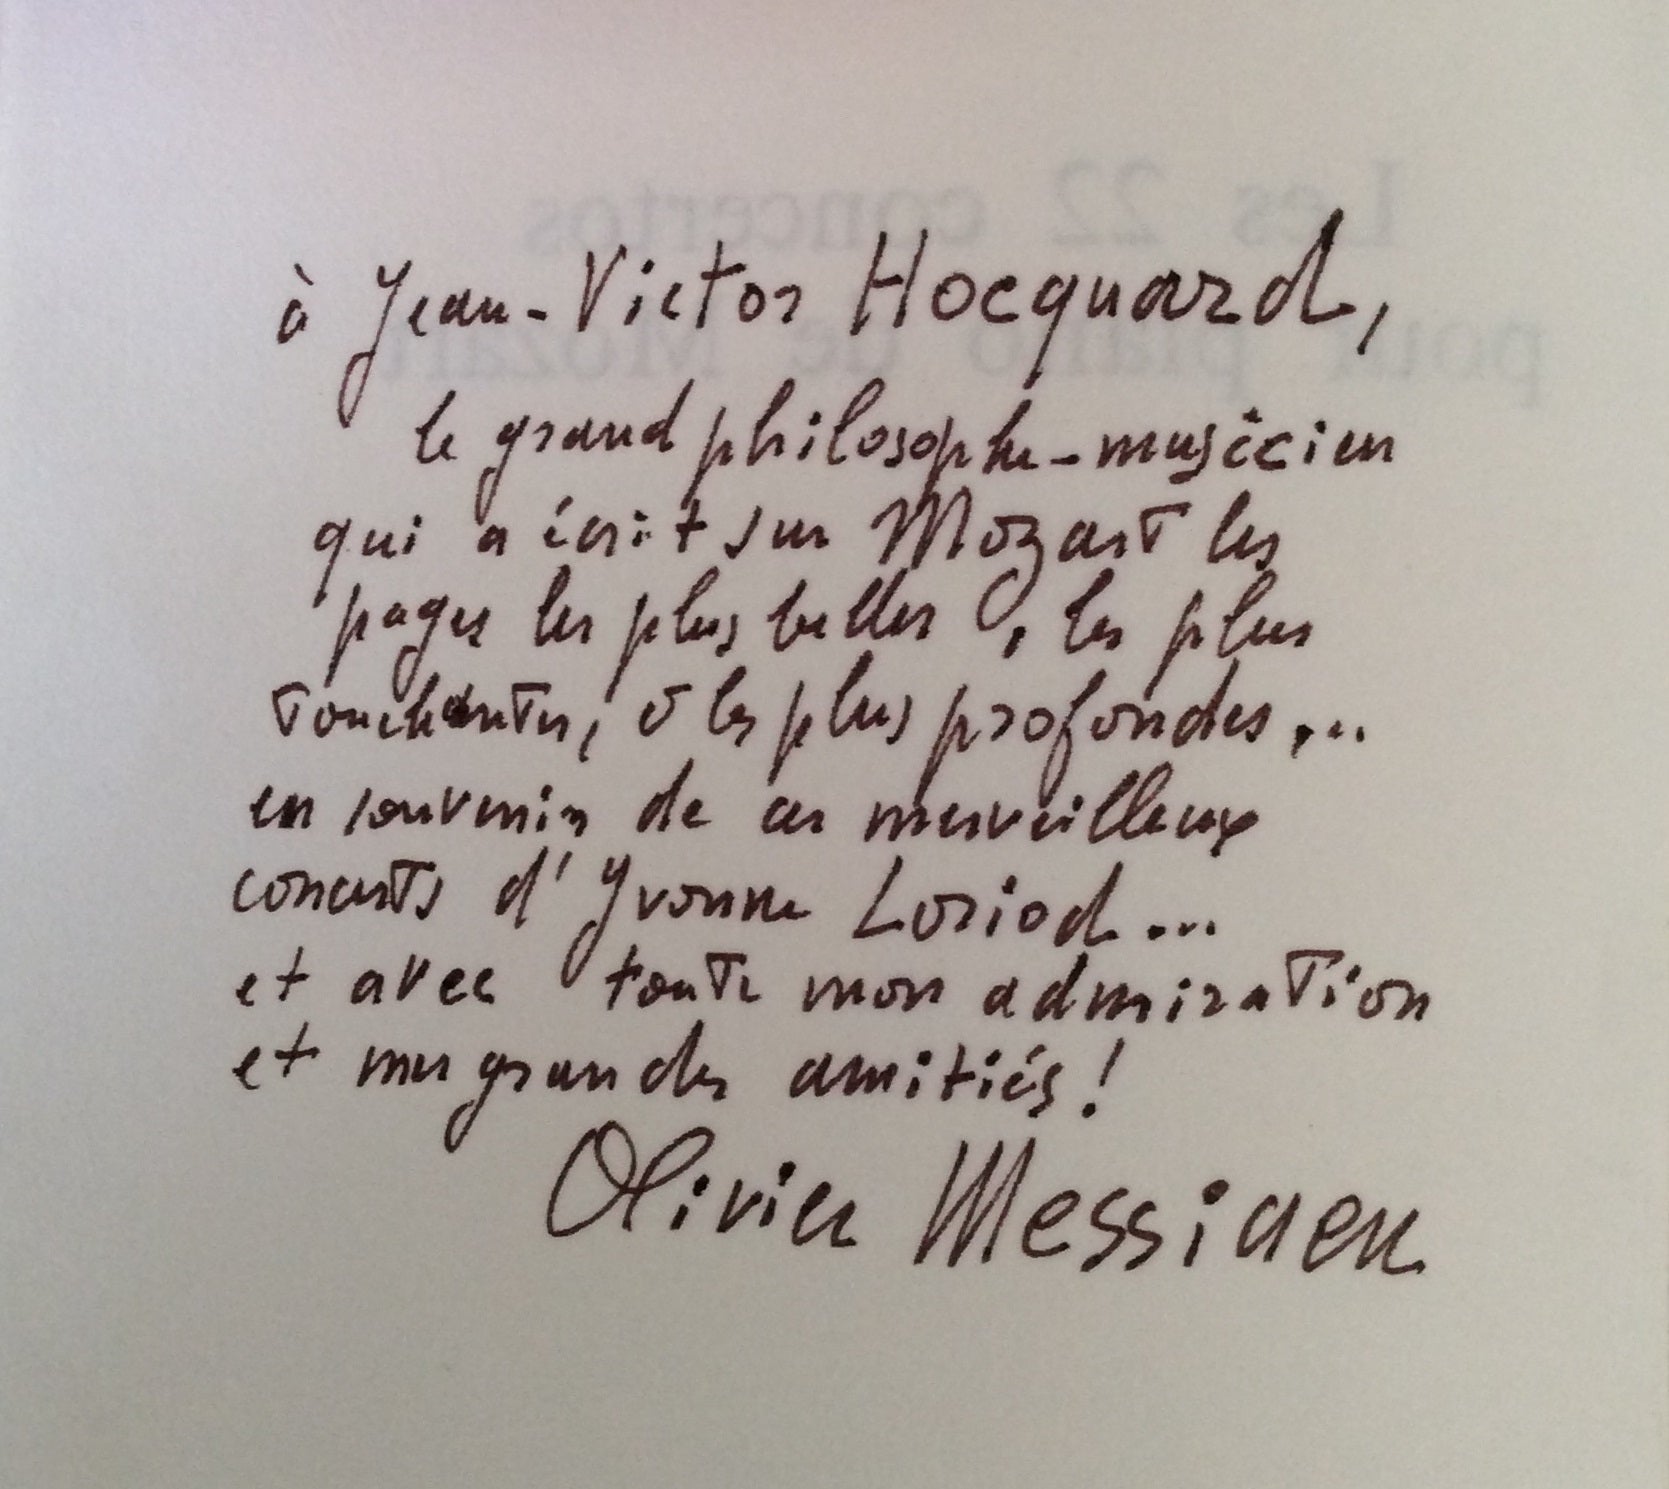 Les 22 concertos
pour piano de Mozart
à Jean-Victor Hocquard,
le grand philosophe-musicien
qui a écrit sur Mozart les
pages les plus belles, les plus
touchantes, les plus profondes...
en souvenir de ces merveilleux
concerts d'Yvonne Loriod...
et avec toute mon admiration
et mes grandes amitiés !
Olivier Messiaen